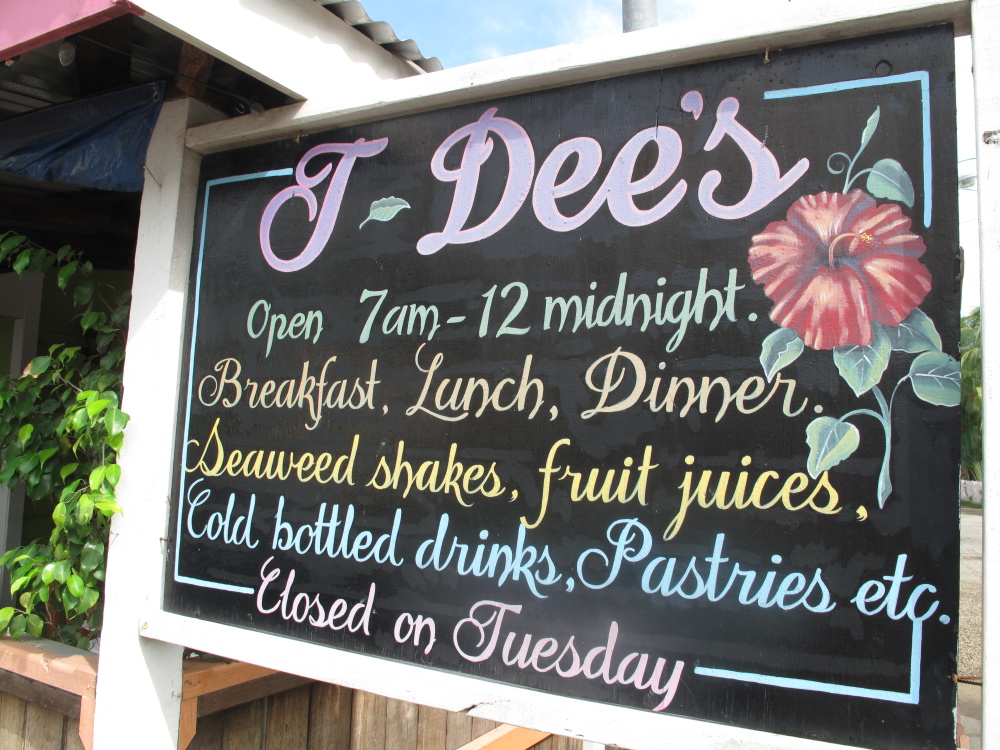 T-Dee's
Open 7am-12 midnight.
Breakfast, Lunch, Dinner.
Seaweed shakes, fruit juices,
Cold bottled drinks, Pastries etc.
Closed on Tuesday